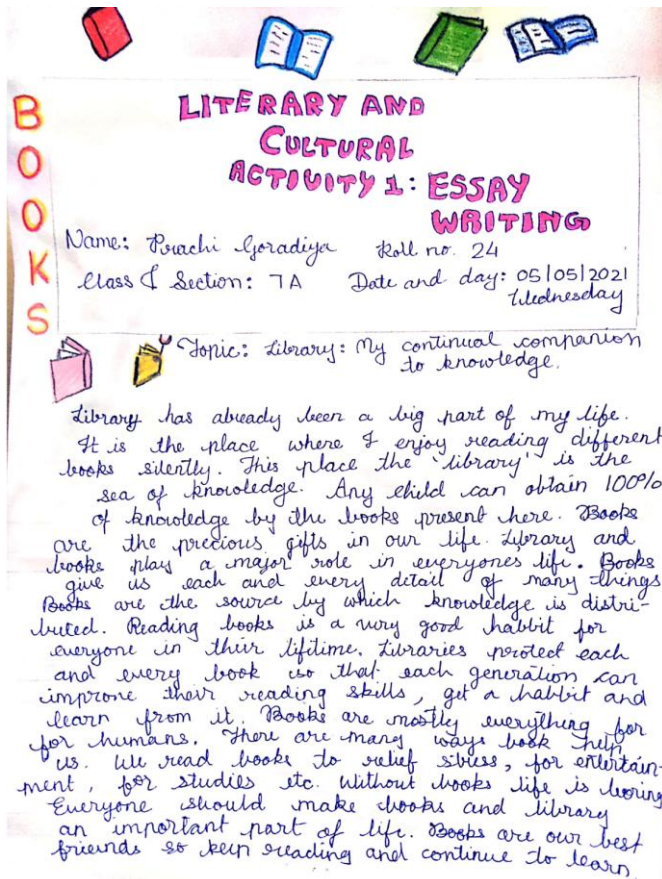 BOOKS
LITERARY AND
CULTURAL
ACTIVITY 1: ESSAY
WRITING
Name: Prachi Goradiya Roll no. 24
Class & Section: 7A Date and day: 05/05/2021
Wednesday
Topic: Library: My continual companion
to knowledge.
Library has already been a big part of my life.
It is the place where I enjoy reading different
books silently. This place the 'library' is the
sea of knowledge. Any child can obtain 100%
of knowledge by the books present here. Books
are the precious gifts in our life. Library and
books play a major role in everyones life. Books
give us each and every detail of many things
Books are the source by which knowledge is distri-
buted. Reading books is a very good habbit for
everyone in their lifitime. Libraries protect each
and every book so that each generation can
improne their reading skills, get a habbit and
learn from it. Books are mostly everything for
for humans. There are many ways book help
us. We read books to relief stress, for entertain-
ment, for studies etc. Without books life is boring
Everyone should make books and library
an important part of life. Books are our best
friends so keep reading and continue to learn.